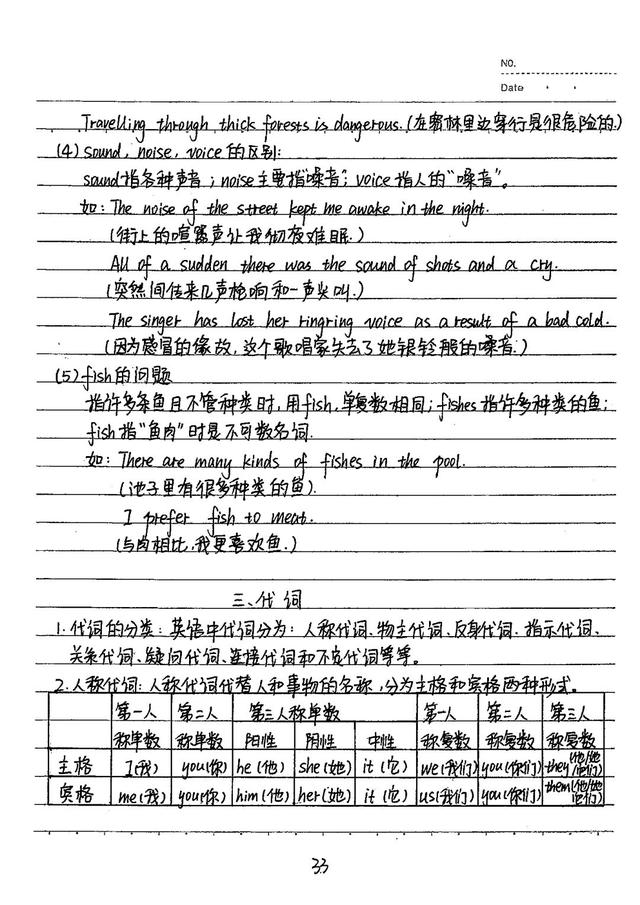 NO.
Date
Travelling through thick forests is dangerous.(在密林里边穿行是很危险的)
(4) sound, noise, voice的区别:
sound指各种声音；noise主要指"噪音"；voice指人的"嗓音"。
如: The noise of the street kept me awake in the night.
(街上的喧嚣声让我彻夜难眠.)
All of a sudden there was the sound of shots and a cry.
(突然间传来几声枪响和一声尖叫.)
The singer has lost her ringring voice as a result of a bad cold.
(因为感冒的缘故,这个歌唱家失去了她银铃般的嗓音.)
(5) fish的问题
指许多条鱼且不管种类时,用fish,单复数相同；fishes指许多种类的鱼；
fish指"鱼肉"时是不可数名词.
如: There are many kinds of fishes in the pool.
(池子里有很多种类的鱼).
I prefer fish to meat.
(与肉相比,我更喜欢鱼.)
三、代词
1. 代词的分类: 英语中代词分为: 人称代词、物主代词、反身代词、指示代词、
关系代词、疑问代词、连接代词和不定代词等等。
2. 人称代词: 人称代词代替人和事物的名称,分为主格和宾格两种形式。
第一人 第二人 第三人称单数 第一人 第二人 第三人
称单数 称单数 阳性 阴性 中性 称复数 称复数 称复数
主格 I(我) you(你) he(他) she(她) it(它) we(我们) you(你们) they(他/她/它们)
宾格 me(我) you(你) him(他) her(她) it(它) us(我们) you(你们) them(他/她/它们)
33